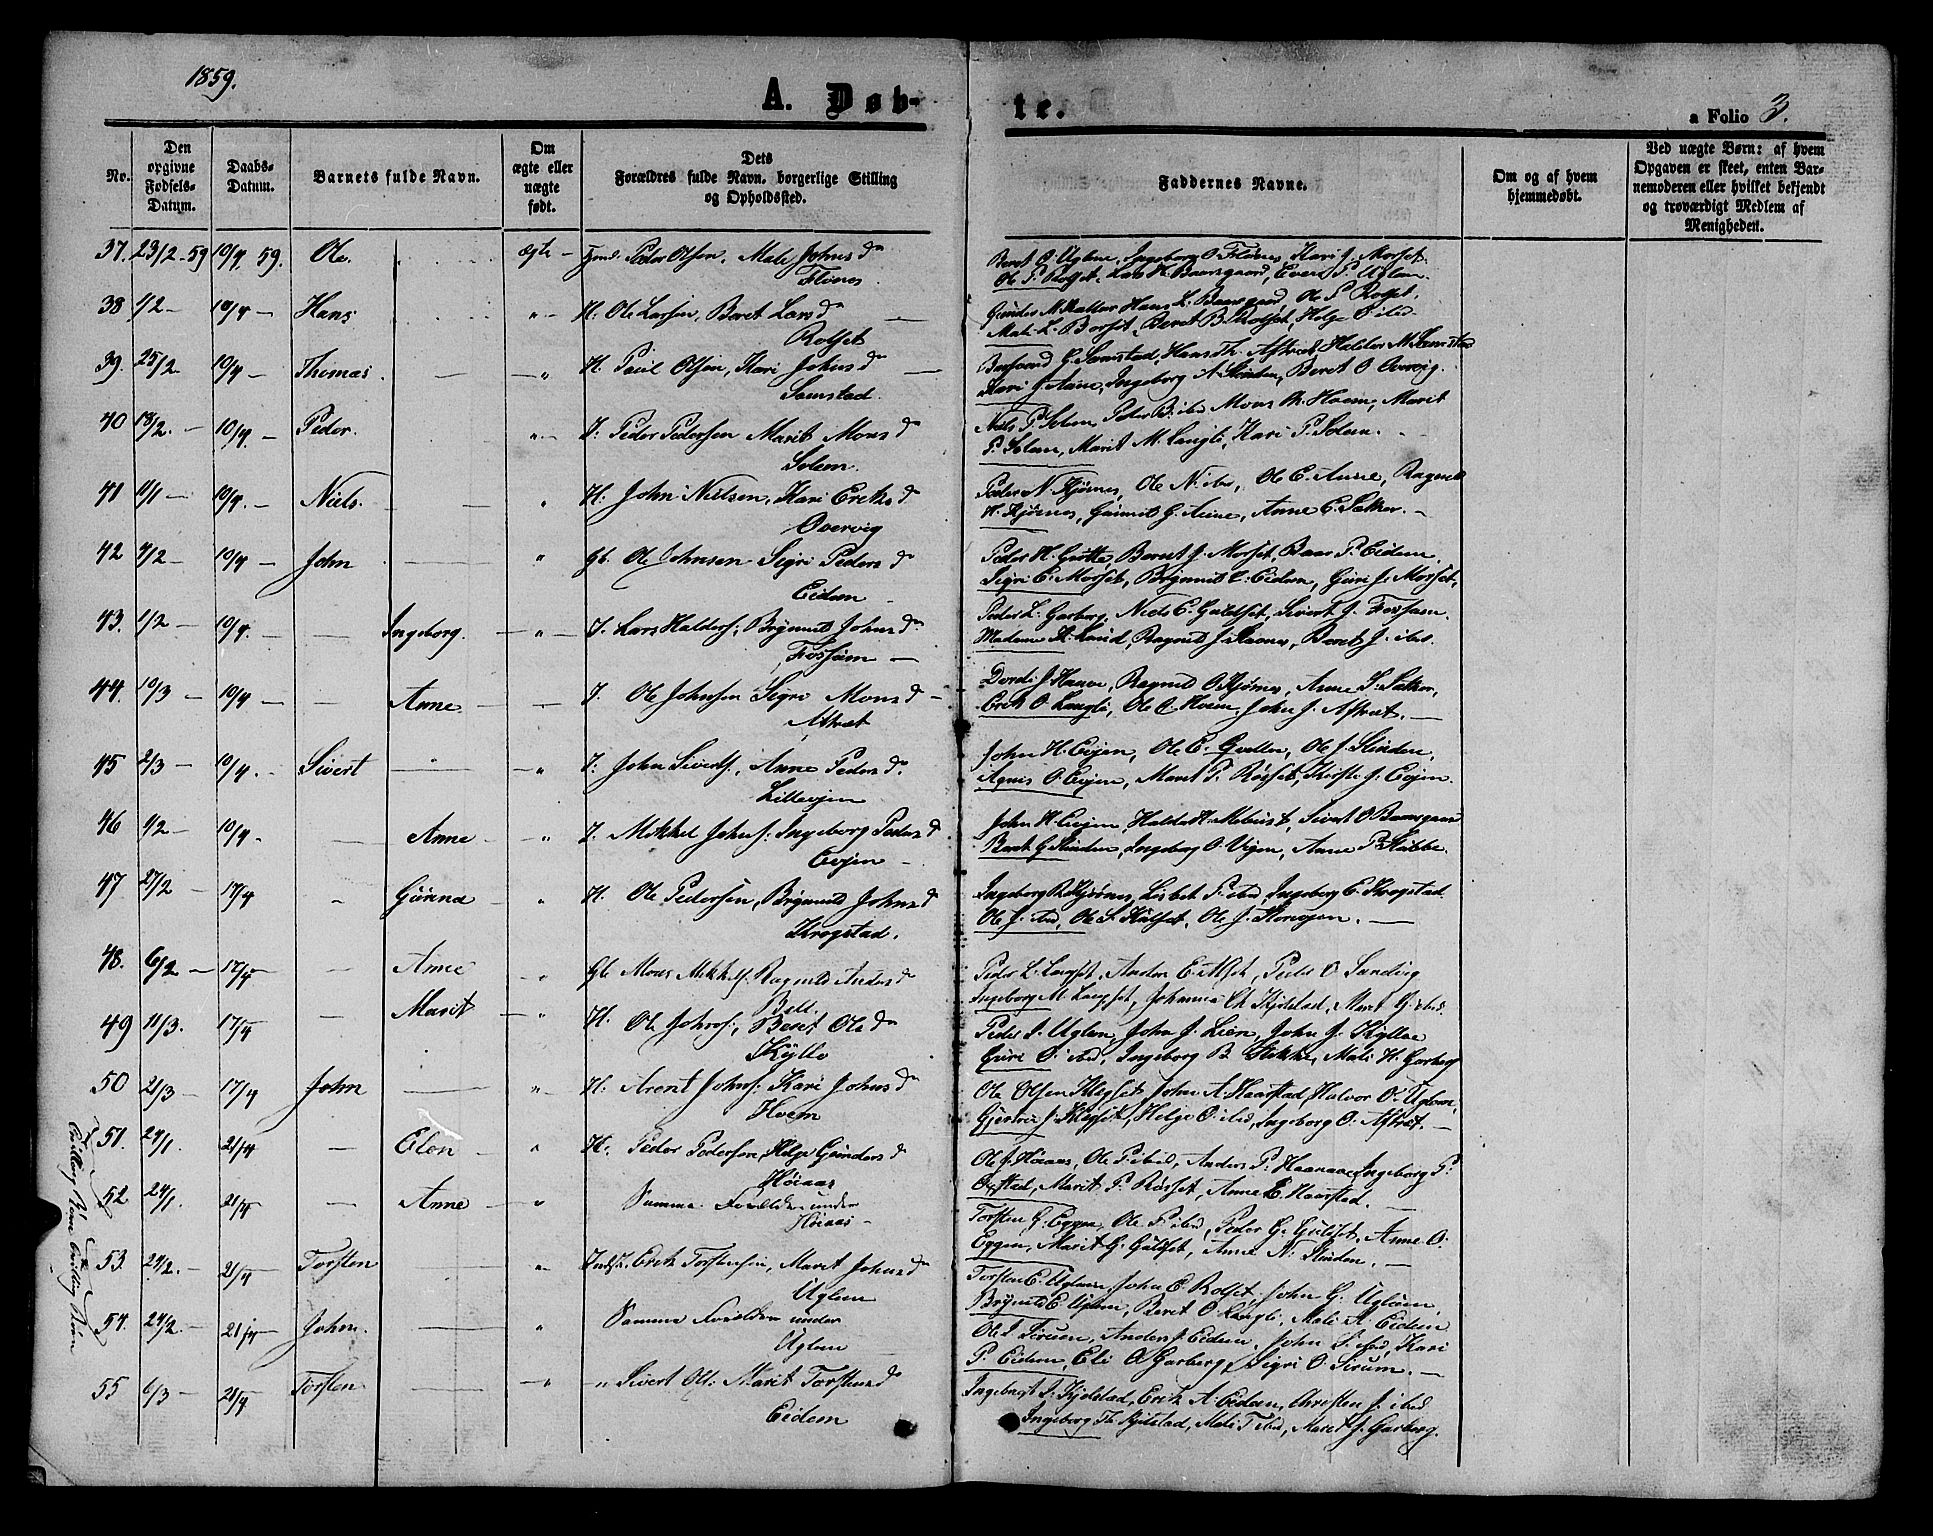 1859.
A. Døb-
te.
a Folio 3.
No.
Den opgivne Fødsels-Datum.
Daabs-Datum.
Barnets fulde Navn.
Om ægte eller uægte født.
Dets Forældres fulde Navn, borgerlige Stilling og Opholdssted.
Faddernes Navne.
Om og af hvem hjemmedøbt.
Ved uægte Børn: af hvem Opgaven er skeet, enten Barnemoderen eller hvilket bekjendt og troværdigt Medlem af Menigheden.
37. 23/2-59 10/4 59. Ole. ægte Peder Olsen, Mali Johnsd
Flönes
Beret O. Uglem, Ingeborg O. Flönes, Kari J. Morset.
Ole P. Rolset, Lars H. Baarsgaard, Evert P. Uglem.
38 1/2 10/4 Hans " H. Ole Larsen, Beret Larsd
Rolset
Hans L. Baarsgaard, Ole P. Rolset,
Mali L. Borset, Beret B. Rolset, Helge O ibid
39. 25/2 10/4 Thomas " H. Paul Olsen, Kari Johnsd
Samstad.
G. Samstad, Hans Th. Aftret, Haldor M. Samstad
Kari J. Aune, Ingeborg A. Slinden, Beret O. Overvig.
40 18/2. 10/4 Peder. " I: Peder Pedersen Marit Monsd
Solem.
Niels P. Solem, Peder B. ibid Mons M. Hoem, Marit
P. Solem, Marit M. Langli, Kari P. Solem.
41 11/1 10/4. Niels. " H: John Nielsen, Kari Eriksd
Overvig
Peder N. Kjösnes, Ole N. ibd, Ole E. Aune, Ragnild
H. Kjösnes, Gunnild G. Aune, Anne E. Sakker.
42 4/2 10/4 John " Gb. Ole Johnsen Sigri Pedersd
Eidem
Peder H. Grötte, Berent J. Morset, Baar P. Eidem,
Sigri E. Morset, Brynnild E. Eidem, Guri J. Morset.
43. 1/2 10/4. Ingeborg. " I. Lars Halders. Brynnild Johnsd
Fossum
Peder L. Garberg, Niels E. Guldset, Sivert J. Fossum.
Madame H. Lund, Ragnild J. Stavnes, Beret J. ibd.
44. 19/3 10/4 Anne. I. Ole Johnsen Sigri Monsd
Aftret
Dordi J. Haave, Ragnild O. Kjösnes, Anne I. Sakker,
Erik O. Langli, Ole O. Hoem, John J. Aftret.
45 2/3 10/4. Sivert " I: John Siverts., Anne Pedersd.
Lilleevjen
John H. Evjen, Ole E. Qvellen, Ole J. Slinden,
Agnes O. Evjen, Marit P. Rörset, Kirste J. Evjen.
46 1/2 10/4. Anne " I. Mikkel Johns: Ingeborg Pedersd
Evjen
John H. Evjen, Haldo H. Mebust, Sivert O. Baarsgaard
Berit G. Slinden, Ingeborg O. Vigen, Anne P. Stubbe.
47 27/2 17/4 Gunnel " H. Ole Pedersen, Brynnild Johnsd
Krogstad.
Ingeborg R. Kjösnes, Lisbet P. ibid, Ingeborg E. Krogstad.
Ole J. ibd, Ole S. Kulset, Ole J. Storevjen.
48. 6/2 17/4 Anne " Gb Mons Mikkels. Ragnild Andersd
Bell.
Peder L. Langset, Anders E. Alset, Peder O. Sandvig
Ingeborg M. Langset, Johanna Ch Kjelstad, Marit G. ibid.
49 11/3. 17/4 Marit " H. Ole Johns., Beret Olsd
Kyllo
Peder I. Uglem, John J. Lien, John J. Kylloe
Guri O. ibid, Ingeborg B. Stokke, Mali H. Garberg
50 21/3 17/4 John " H: Arent Johns: Kari Johnsd
Hoem
Ole Olsen Klegset, John A. Haarstad, Halvor O. Uglem,
Gjertrue J. Klegset, Helge O. ibid, Ingeborg O. Aftret.
51. 24/1. 21/4 Elen " H. Peder Pedersen, Helge Gundersd
Höiaas
Ole J. Höiaas, Ole P. ibid, Anders P. Haanaas, Ingeborg P.
Opstad, Marit P. Rörset, Anne E. Haarstad.
52 24/1. 21/4 Anne " Samme Forældre under
Höiaas
Torsten G. Eggen, Ole P. ibid, Peder G. Guldset, Anne O.
Eggen, Marit G. Guldset, Anne N. Slinden.
53. 24/2. 21/4 Torsten " Indst. Erik Torstensen, Marit Johnsd
Uglem
Torsten E. Uglem, John E. Rolset, John G. Uglem,
Brynild E. Uglem, Beret O. Langli, Mali A. Eidem
54. 24/2. 21/4 John. " Samme Forældre under
Uglem
Ole I. Sirum, Anders J. Eidem, John S. ibid, Kari
P. Eidem, Eli O. Garberg, Sigri O. Sirum.
55 6/3 21/4 Torsten " " Sivert Ols: Marit Torstensd
Eidem
Ingebrigt I. Kjelstad, Erik A. Eidem, Christen J. ibid
Ingeborg Th. Kjelstad, Mali T. ibid, Marit J. Garberg.
Tvilling Börn
Tvilling Börn